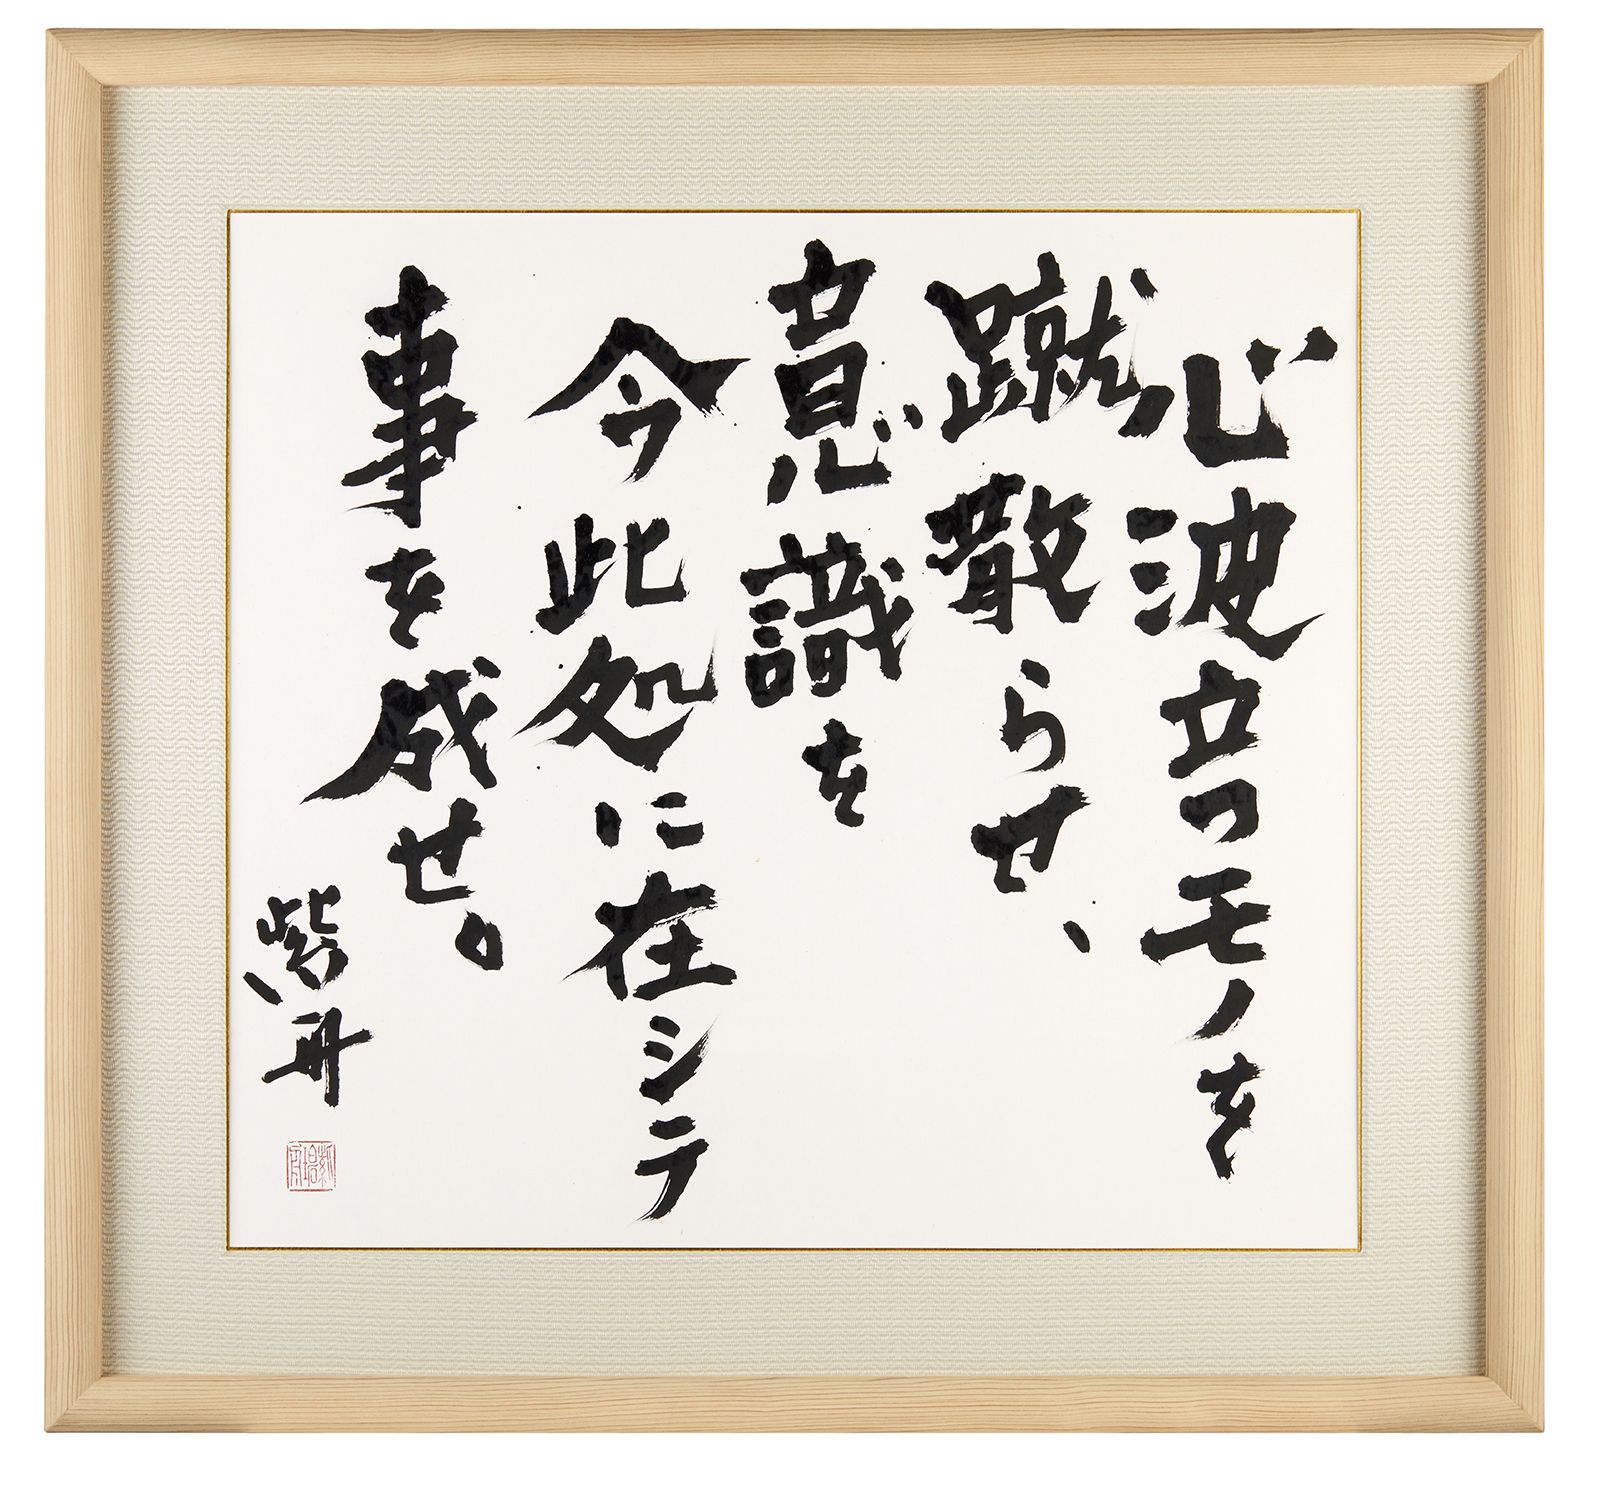 心波立つモノを
蹴散らせ、
意識を
今此処に在シテ
事を成せ。
紫舟